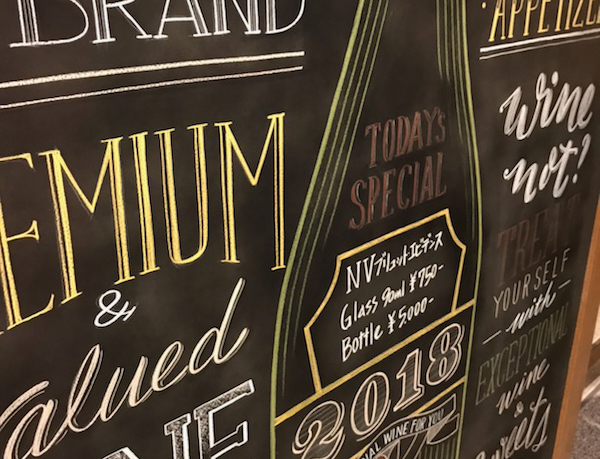 BRAND
EMIUM
&
alued
NE
TODAY'S
SPECIAL
NVブルットエビデンス
Glass 90ml ¥750-
Bottle ¥5.000-
2018
IAL WINE FOR YOU
APPETIZE
Wine
not?
TREAT
YOURSELF
with
EXCEPTIONAL
wine
&
sweets